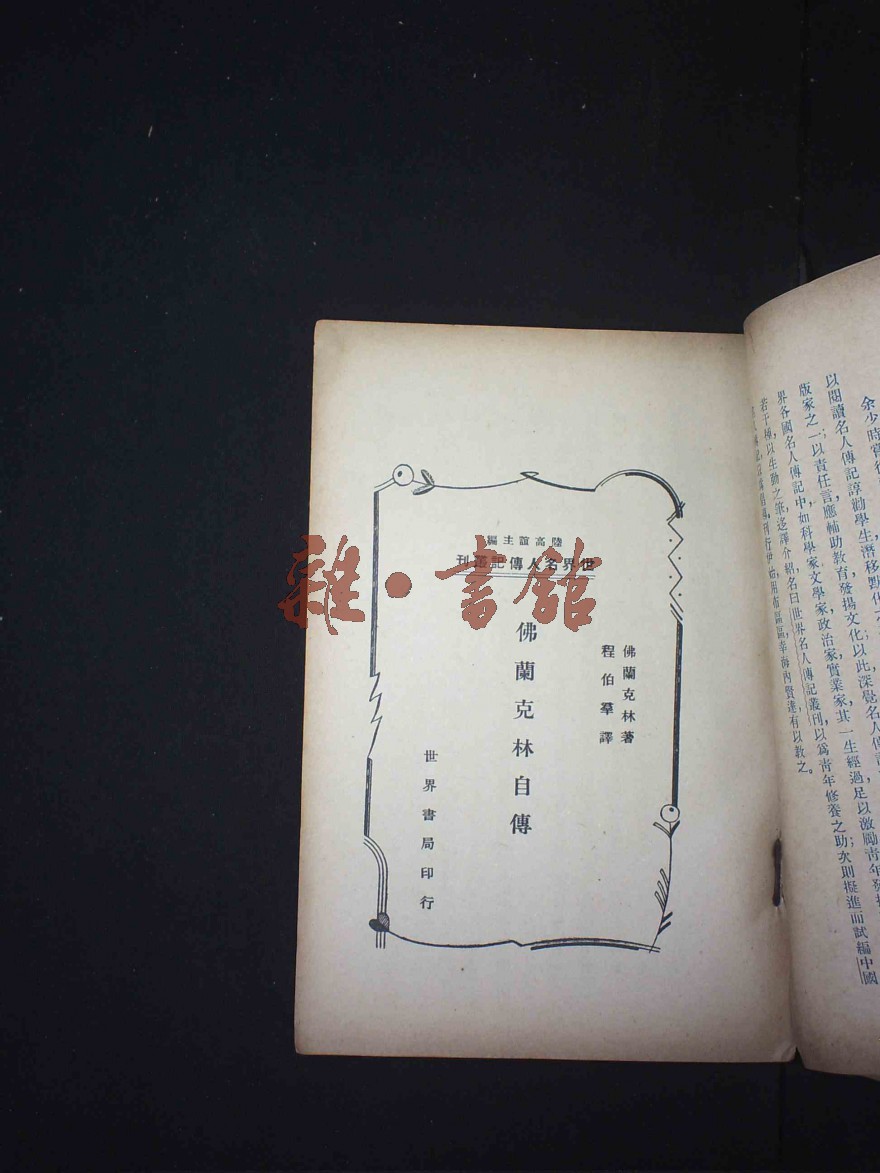 陸高誼主編
世界名人傳記叢刊
佛蘭克林著
程伯羣譯
佛蘭克林自傳
世界書局印行
雜·書館
余少時嘗從
以閱讀名人傳記諄勸學生潛移默化
版家之一;以責任言應輔助教育發揚文化以此深覺名人傳記
界各國名人傳記中,如科學家文學家政治家實業家,其一生經過足以激勵青年發
若干種,以生動之筆,迻譯介紹,名曰世界名人傳記叢刊,以爲青年修養之助;次則擬進而試編中國
刊行伊始,用布區區,幸海內賢達有以教之。